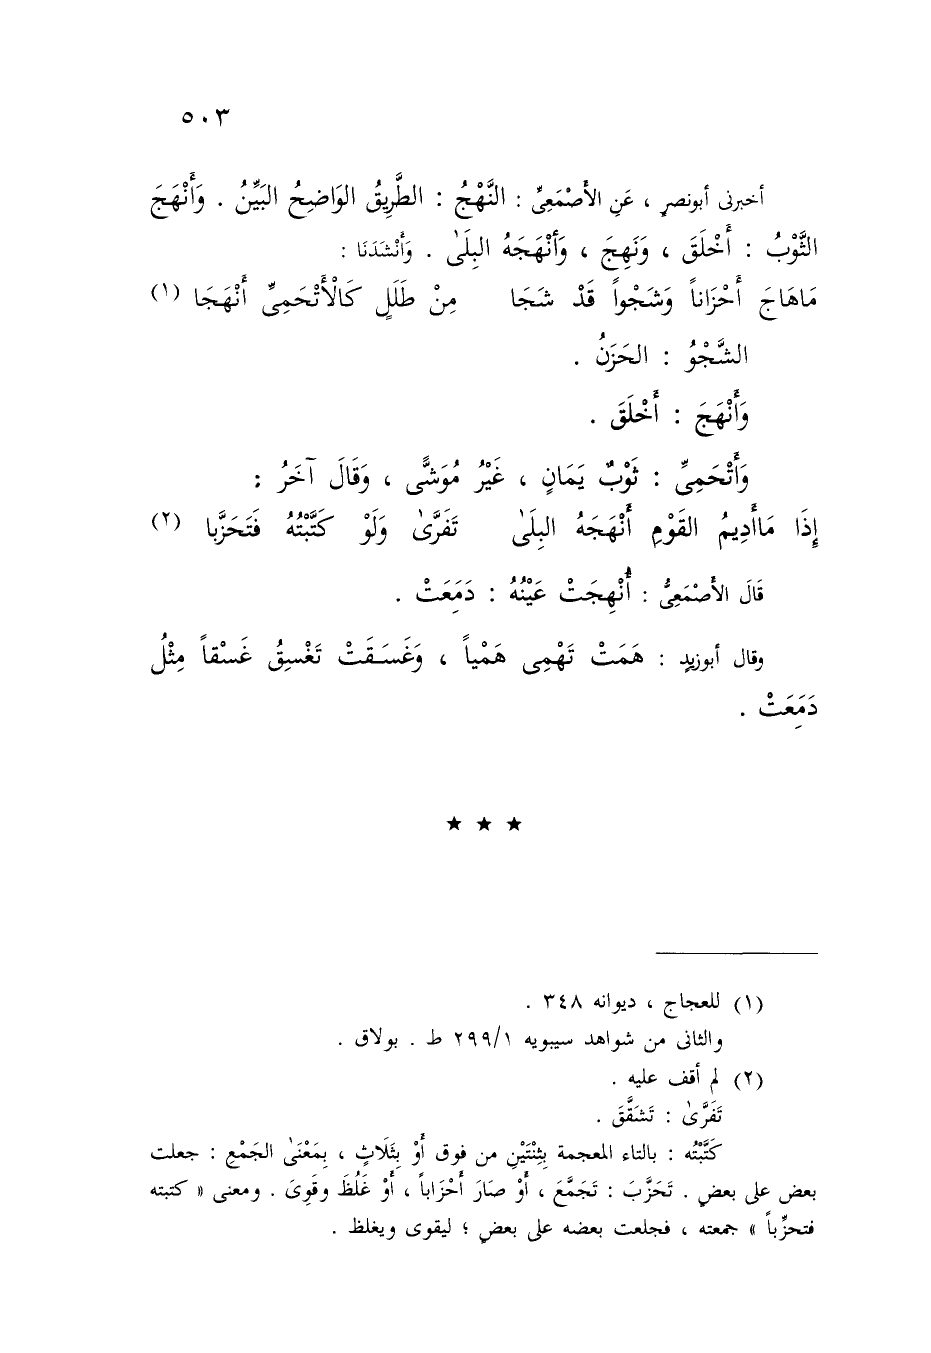 ٥٠٣
أخبرنى أبونصرٍ ، عَنِ الأَصْمَعِىِّ : النَّهْجُ : الطَّرِيقُ الوَاضِحُ البَيِّنُ . وَأَنْهَجَ
الثَّوْبُ : أَخْلَقَ ، وَنَهِجَ ، وَأَنْهَجَهُ البِلَىٰ . وَأَنْشَدَنَا :
مَاهَاجَ أَحْزَاناً وَشَجْواً قَدْ شَجَا مِنْ طَلَلٍ كَالْأَتْحَمِىِّ أَنْهَجَا (١)
الشَّجْوُ : الحَزَنُ .
وَأَنْهَجَ : أَخْلَقَ .
وَأَتْحَمِىِّ : ثَوْبٌ يَمَانٍ ، غَيْرُ مُوَشًّى ، وَقَالَ آخَرُ :
إِذَا مَاأَدِيمُ القَوْمِ أَنْهَجَهُ البِلَىٰ تَفَرَّىٰ وَلَوْ كَتَّبْتُهُ فَتَحَزَّبا (٢)
قَالَ الأَصْمَعِىُّ : أُنْهِجَتْ عَيْنُهُ : دَمَعَتْ .
وقال أبوزيدٍ : هَمَتْ تَهْمِى هَمْياً ، وَغَسَقَتْ تَغْسِقُ غَسْقاً مِثْلُ
دَمَعَتْ .
★ ★ ★
(١) للعجاج ، ديوانه ٣٤٨ .
والثانى من شواهد سيبويه ٢٩٩/١ ط . بولاق .
(٢) لم أقف عليه .
تَفَرَّىٰ : تَشَقَّقَ .
كَتَّبْتُه : بالتاء المعجمة بِثِنْتَيْنِ من فوق أَوْ بِثَلَاثٍ ، بِمَعْنَىٰ الجَمْعِ : جعلت
بعض على بعضٍ . تَحَزَّبَ : تَجَمَّعَ ، أَوْ صَارَ أَحْزَاباً ، أَوْ غَلُظَ وقَوِىَ . ومعنى « كتبته
فتحزِّباً » جمعته ، فجلعت بعضه على بعضٍ ؛ ليقوى ويغلظ .